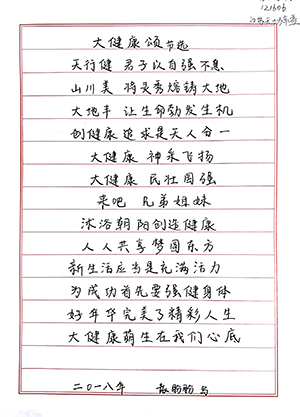 121606
大健康颂节选
天行健 君子以自强不息
山川美 将灵秀熔铸大地
大地丰 让生命勃发生机
创健康 追求是天人合一
大健康 神采飞扬
大健康 民壮国强
来吧 兄弟姐妹
沐浴朝阳创造健康
人人共享梦圆东方
新生活应当是充满活力
为成功首先要强健身体
好年华完美了精彩人生
大健康萌生在我们心底
二〇一八年 书